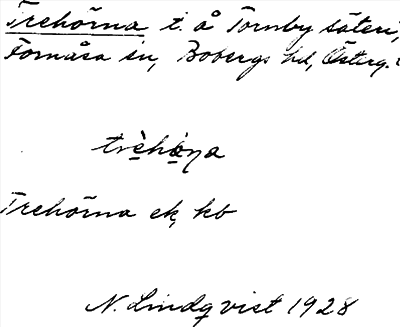 Trehörna t. å Tornby säteri,
Fornåsa sn, Bobergs hd, Österg.
trèhö̀ṇa
Trehörna ek, kb
N. Lindqvist 1928